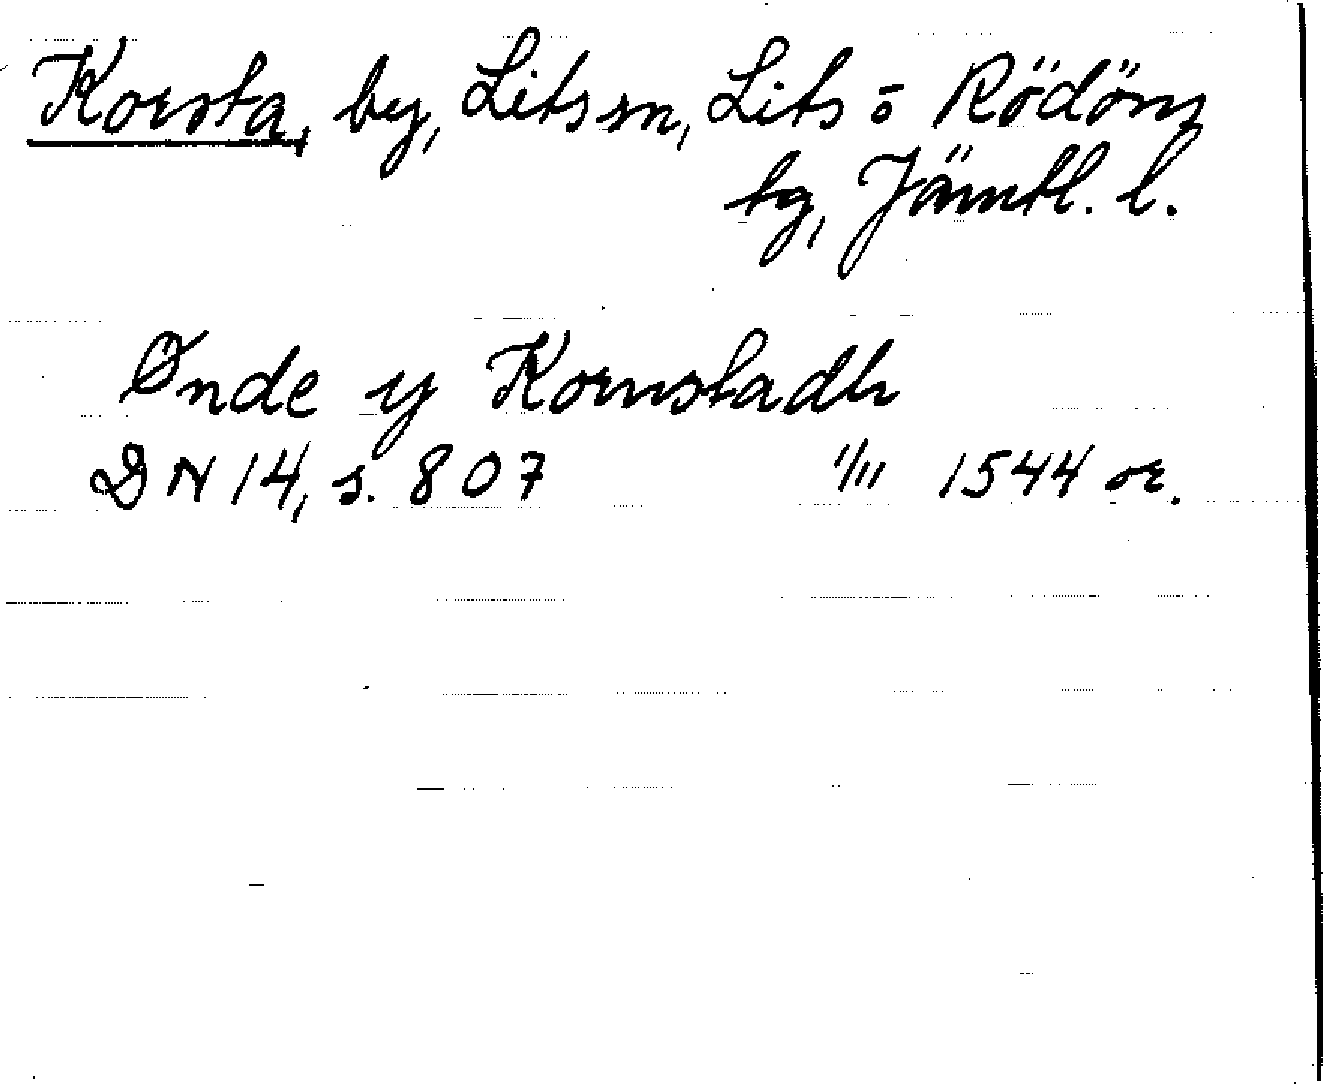 Korsta, by, Lits sn, Lits o Rödöns
tg, Jämtl. l.
Ønde y Kornstadh
DN 14, s. 807 11/11 1544 or.